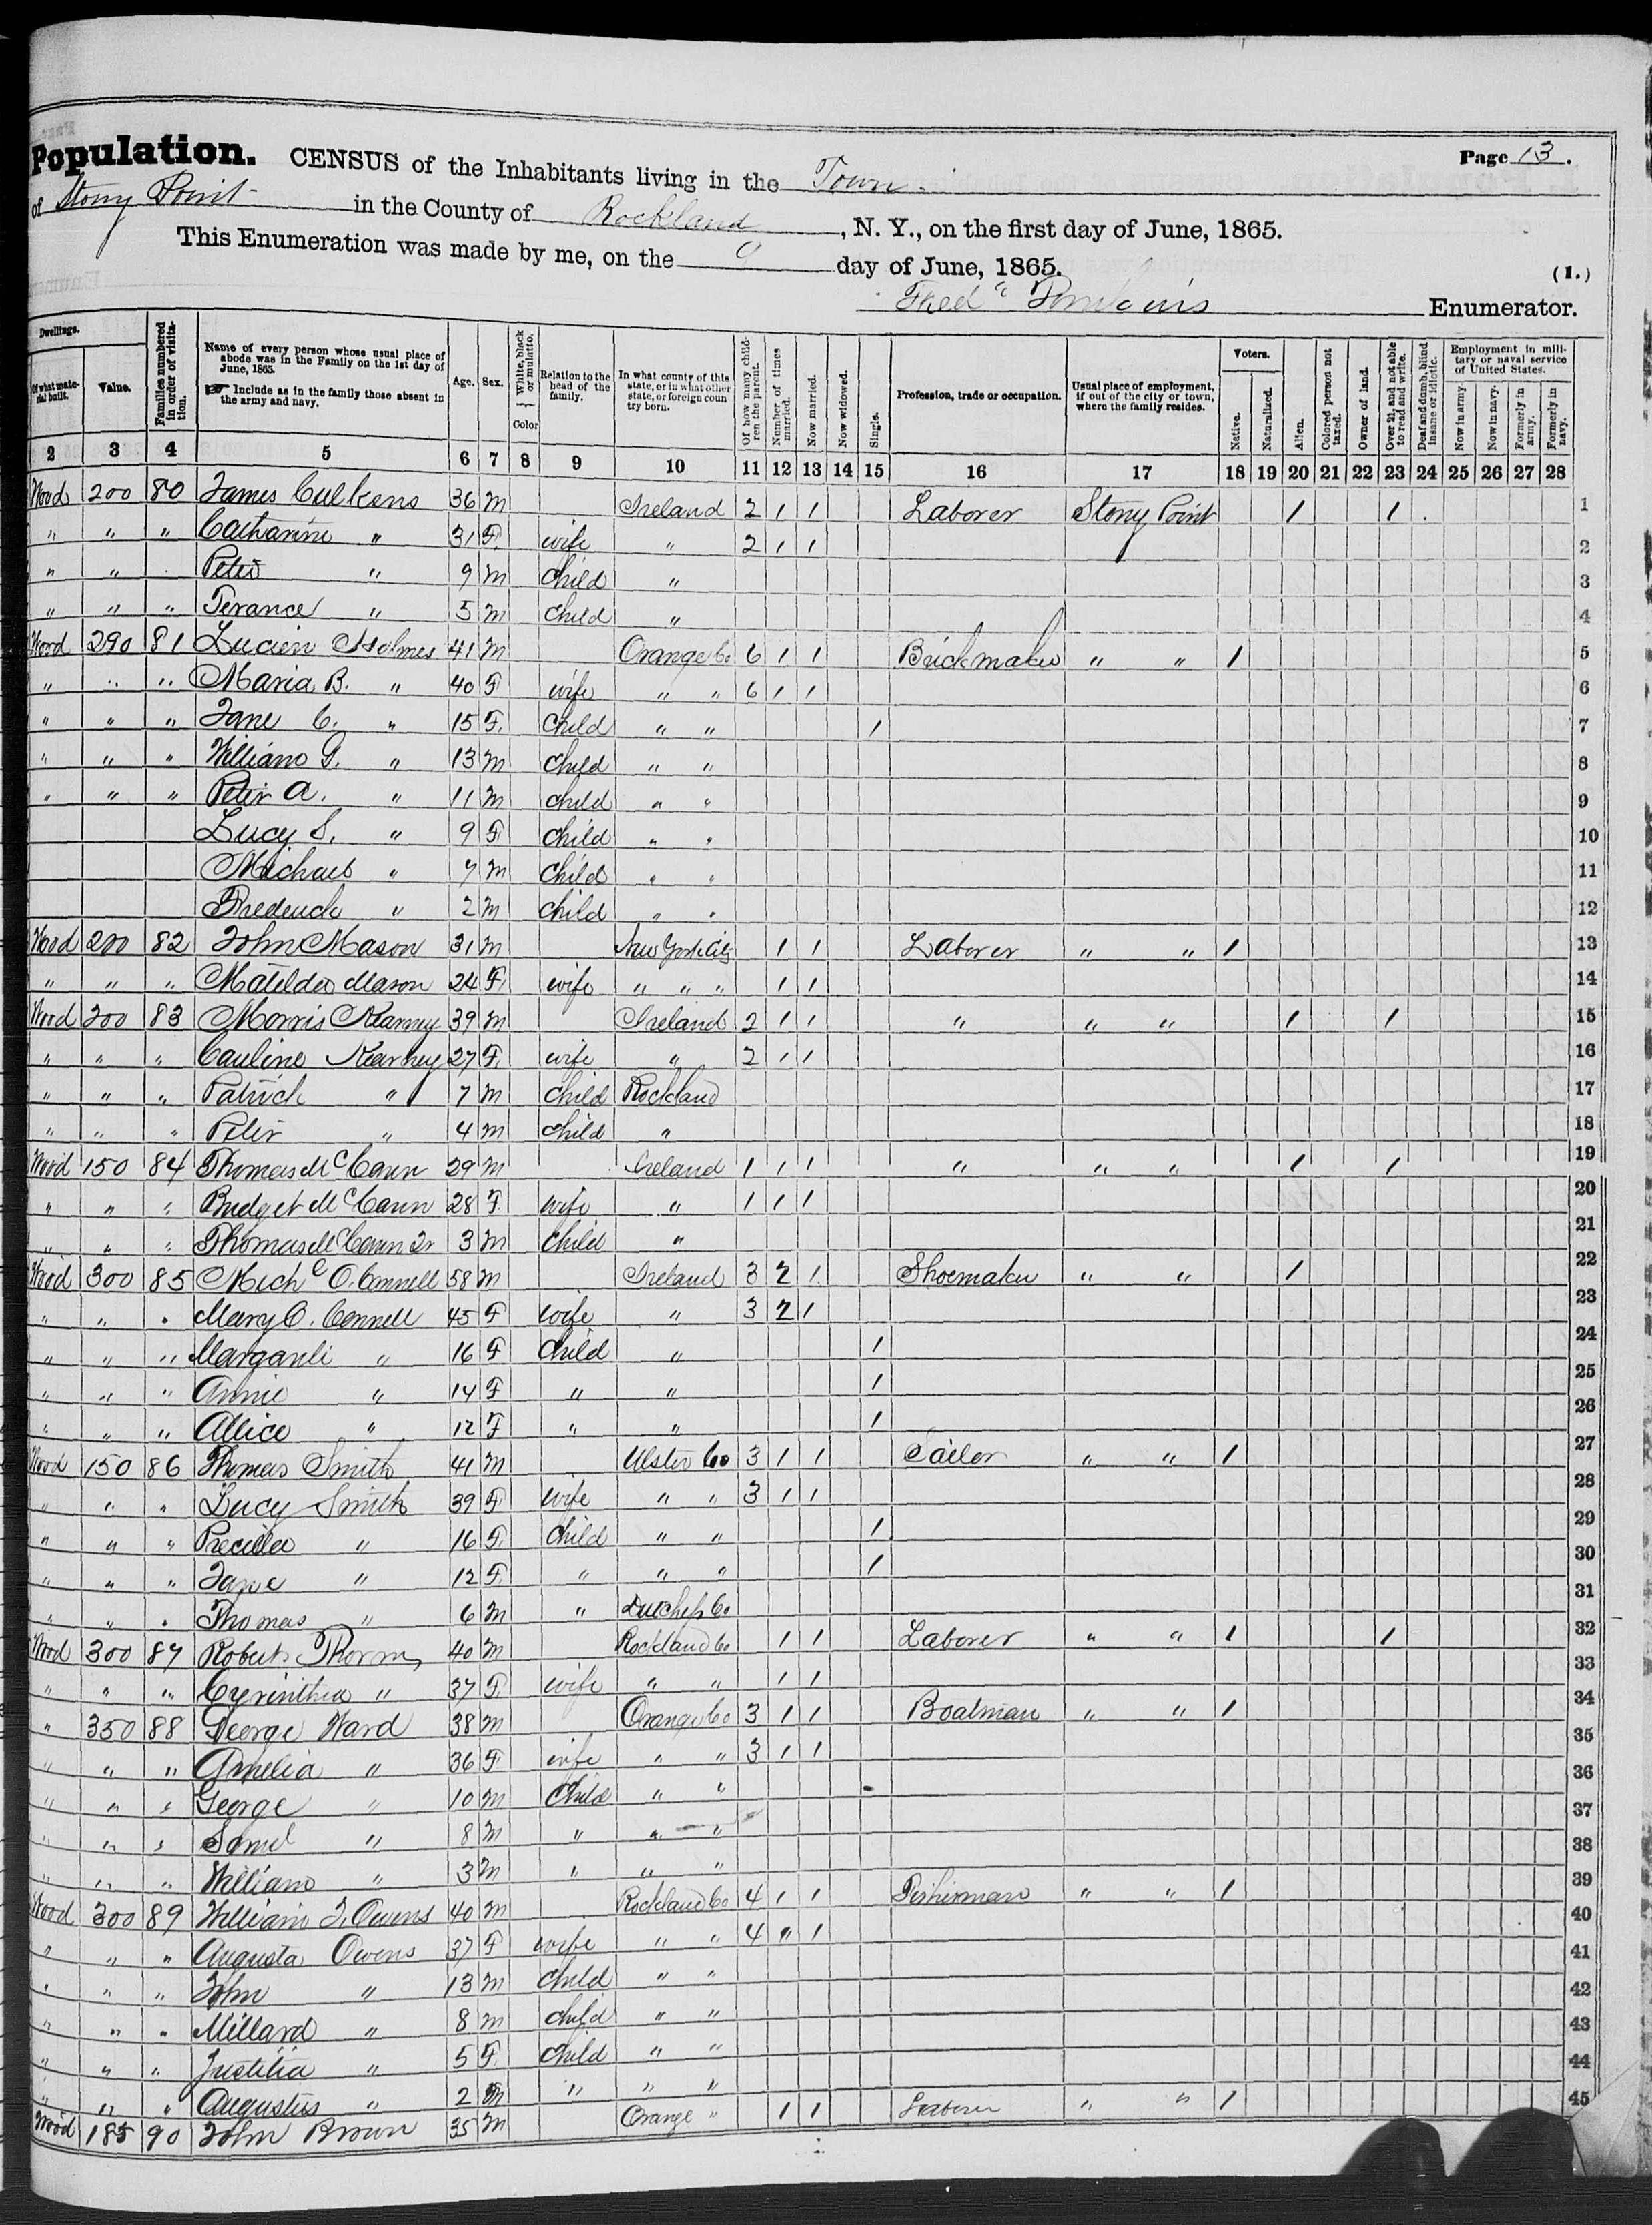 Population. CENSUS of the Inhabitants living in the Town Page 13.
of Stony Point in the County of Rockland, N. Y., on the first day of June, 1865.
This Enumeration was made by me, on the 9 day of June, 1865. (1.)
Fred Enumerator.
Dwellings. Of what material built. Value. Families numbered in order of visitation. Name of every person whose usual place of abode was in the Family on the 1st day of June, 1865. Include as in the family those absent in the army and navy. Age. Sex. White, black or mulatto. Color Relation to the head of the family. In what county of this state, or in what other state, or foreign country born. Of how many children the parent. Number of times married. Now married. Now widowed. Single. Profession, trade or occupation. Usual place of employment, if out of the city or town, where the family resides. Voters. Native. Naturalized. Alien. Colored person not taxed. Owner of land. Over 21, and not able to read and write. Deaf and dumb, blind insane or idiotic. Employment in military or naval service of United States. Now in army. Now in navy. Formerly in army. Formerly in navy.
2 3 4 5 6 7 8 9 10 11 12 13 14 15 16 17 18 19 20 21 22 23 24 25 26 27 28
Wood 200 80 James Culkens 36 M Ireland 2 1 1 Laborer Stony Point 1 1 1
" " " Catharine " 31 F. wife " 2 1 1 2
" " Peter " 9 M Child " 3
" " " Terance " 5 M Child " 4
Wood 290 81 Lucien Holmes 41 M Orange Co 6 1 1 Brickmaker " " 1 5
" " " Maria B. " 40 F wife " " 6 1 1 6
" " " Jane C. " 15 F. Child " " 1 7
" " " William G. " 13 M Child " " 8
" " " Peter A. " 11 M Child " " 9
Lucy S. " 9 F Child " " 10
Michael " 7 M Child " " 11
Frederick " 2 M Child " " 12
Wood 200 82 John Mason 31 M New York City 1 1 Laborer " " 1 13
" " " Matilda Mason 24 F. wife " " " 1 1 14
Wood 200 83 Morris Kearney 39 M Ireland 2 1 1 " " " 1 1 15
" " " Cauline Kearney 27 F. wife " 2 1 1 16
" " " Patrick " 7 M Child Rockland 17
" " " Peter " 4 M Child " 18
Wood 150 84 Thomas McCann 29 M Ireland 1 1 1 " " " 1 1 19
" " " Bridget McCann 28 F. wife " 1 1 1 20
" " " Thomas McCann Jr 3 M Child " 21
Wood 300 85 Michl O. Connell 58 M Ireland 3 2 1 Shoemaker " " 1 22
" " " Mary O. Connell 45 F wife " 3 2 1 23
" " " " 16 F Child " 1 24
" " " Annie " 14 F " " 1 25
" " " Allice " 12 F " " 1 26
Wood 150 86 Thomas Smith 41 M Ulster Co 3 1 1 Sailor " " 1 27
" " " Lucy Smith 39 F wife " " 3 1 1 28
" " " Precilla " 16 F. Child " " 1 29
" " " Jane " 12 F. " " " 1 30
" " " Thomas " 6 M " Dutchess Co 31
Wood 300 87 Robert Thorm 40 M Rockland Co 1 1 Laborer " " 1 1 32
" " " Cyrinthia " 37 F. wife " " 1 1 33
" 350 88 George Ward 38 M Orange Co 3 1 1 Boatman " " 1 34
" " " Amelia " 36 F wife " " 3 1 1 35
" " " George " 10 M Child " " 36
" " " Saml " 8 M " " " 37
" " " William " 3 M " " " 38
Wood 300 89 William J. Owens 40 M Rockland Co 4 1 1 Fisherman " " 1 39
" " " Augusta Owens 37 F wife " " 4 " 1 40
" " " John " 13 M Child " " 41
" " " Millard " 8 M Child " " 42
" " " Justitia " 5 F. Child " " 43
" " " Augustus " 2 M " " " 44
Wood 185 90 John Brown 35 M Orange " 1 1 Laborer " " 1 45